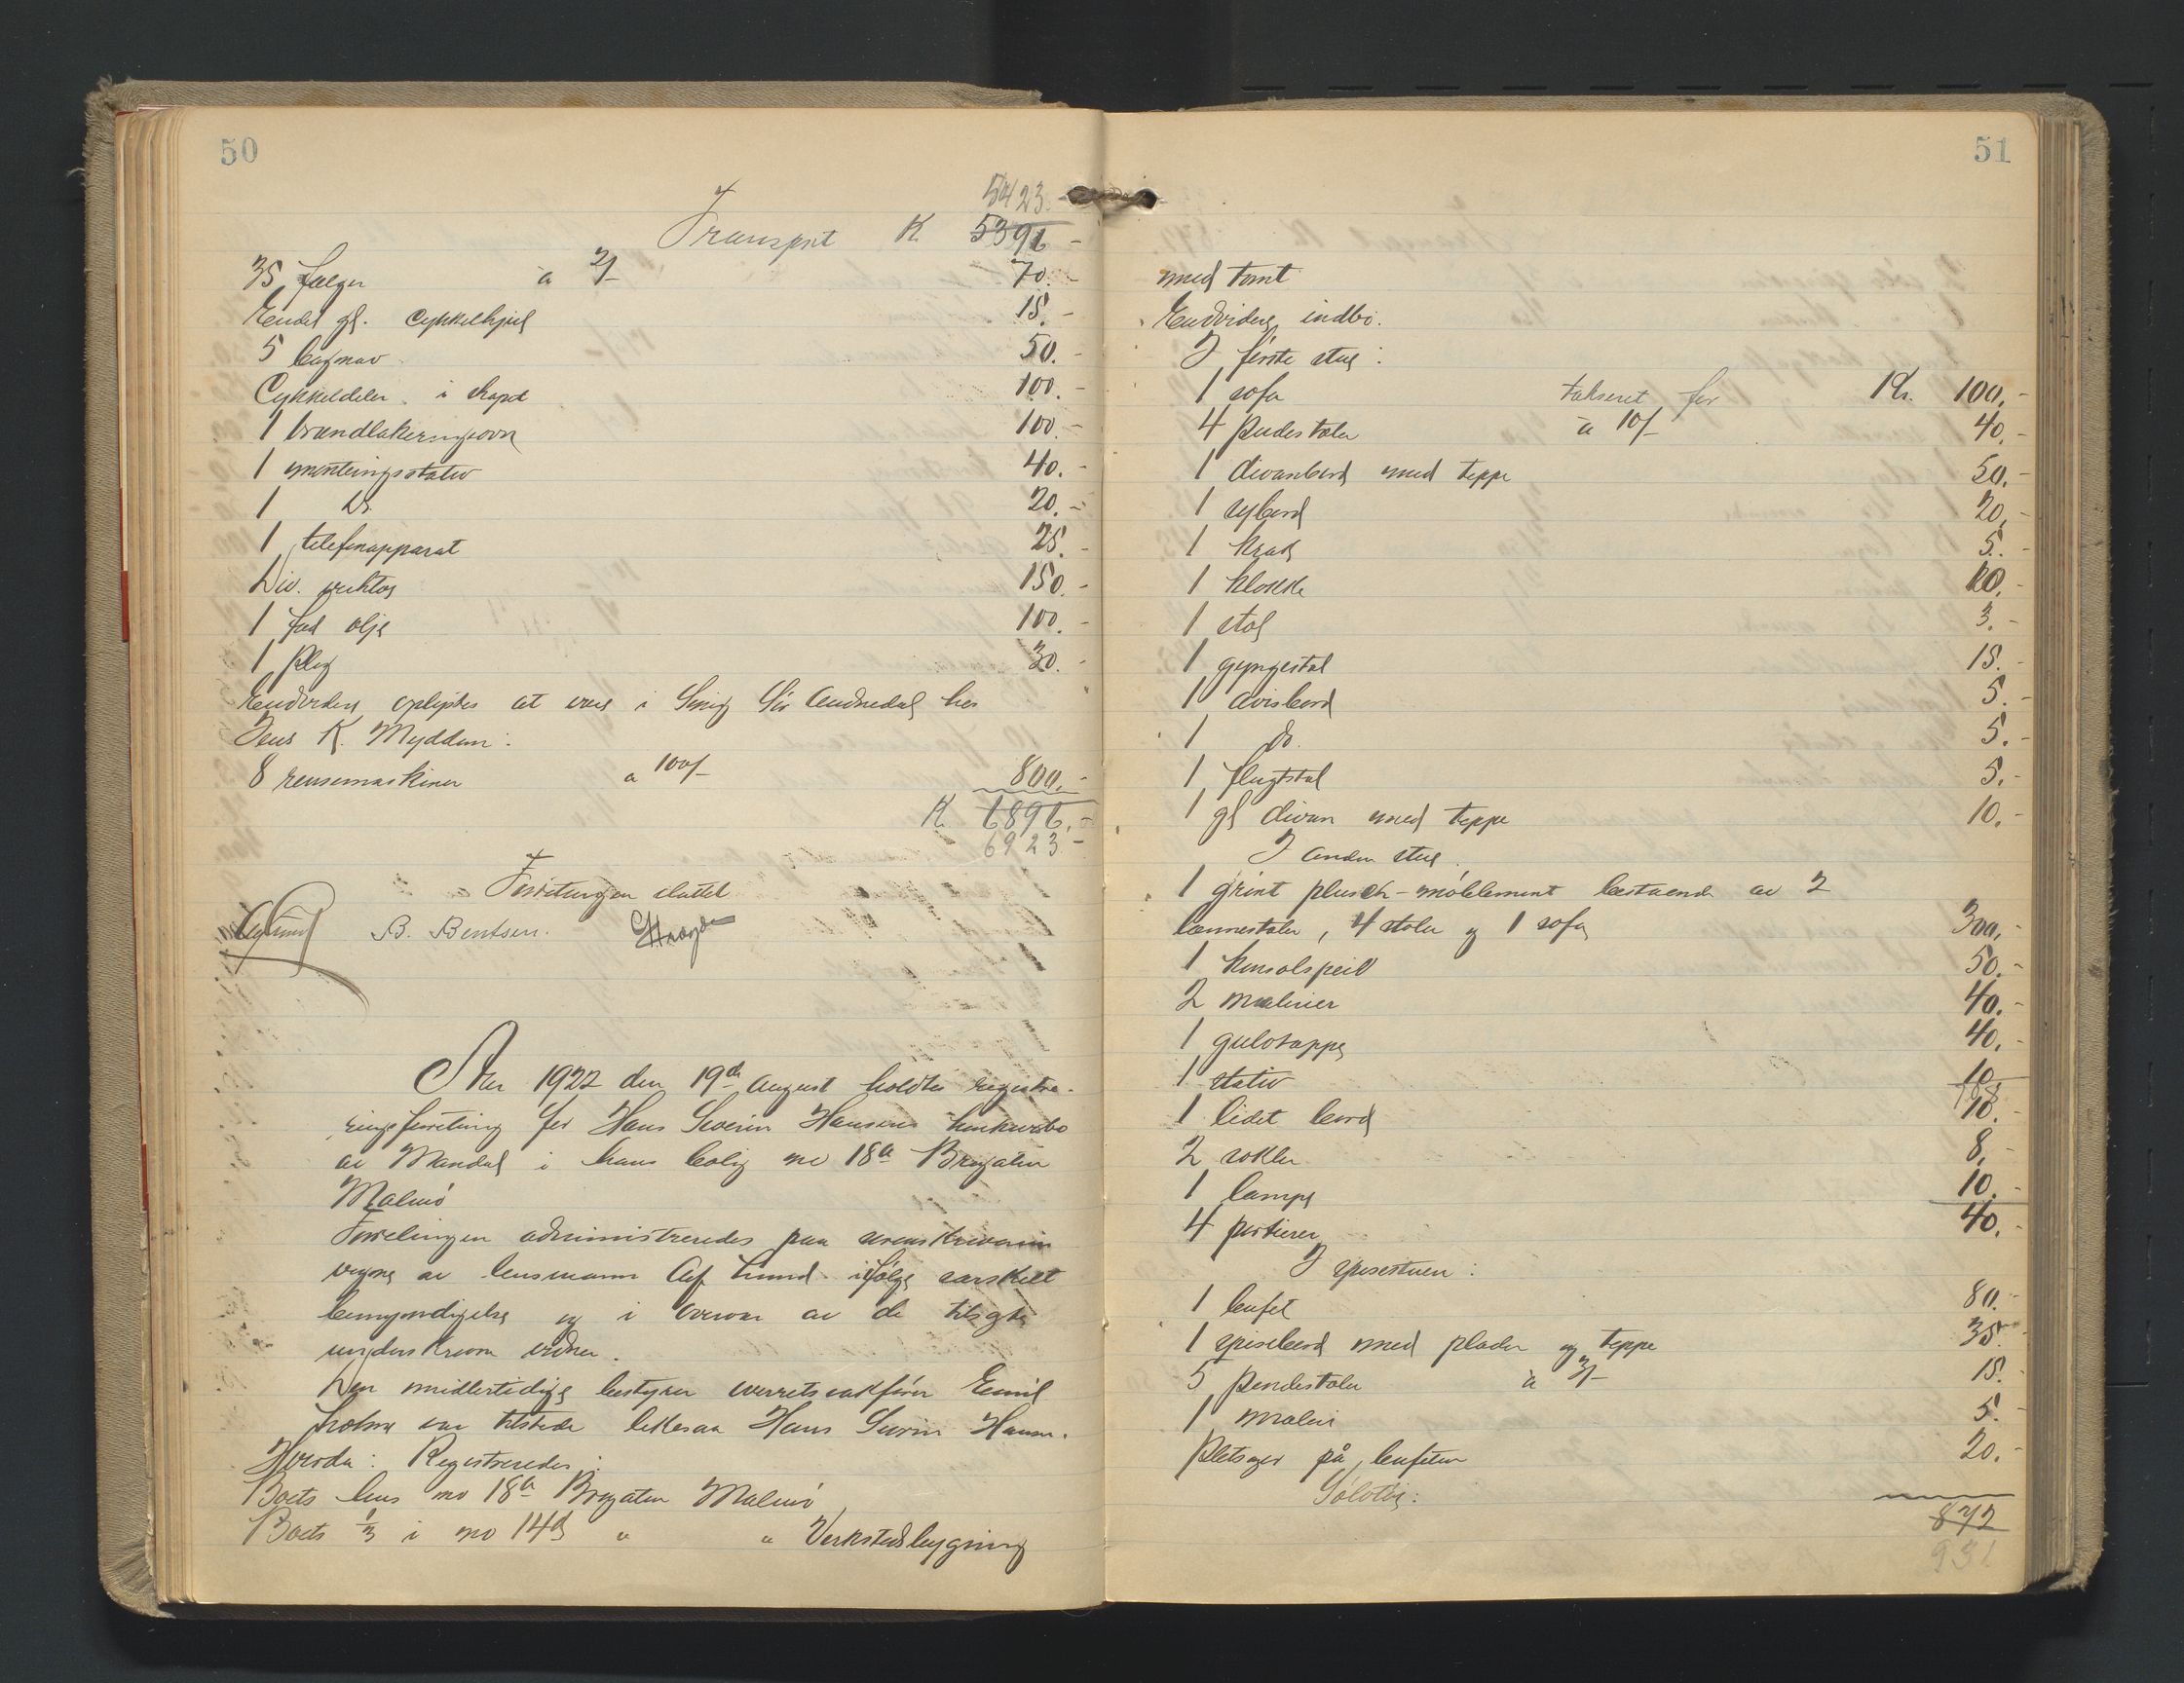 50
5423.-
Transport K 5396 -
35 fælger a 2/- 70.-
Endel gl. Cykkelhjul 15.-
5 bagnav 50.-
Cykkeldeler i skapet 100.-
1 brændlakeringsovn 100.-
1 monteringsstativ 40.-
1 do. 20.-
1 telefonapparat 25.-
Div. verktøy 150.-
1 fad olje 100.-
1 plog 30.-
Endvidere oplystes at være i Sør Audnedal hos
Jens K. Myddun:
8 rensemaskiner a 100/- 800.-
K 6896.-
6923.-
Forretningen sluttet.
B. Bentsen.
Aar 1922 den 19de august holdtes registre-
ringsforretning for Hans Severin Hansens konkursbo
av Mandal i hans bolig no 18a Brygaten
Malmø
Forretningen administreredes paa sorenskriverens
vegne av lensmann Lund ifølge særskilt
bemyndigelse og i overvær av de tilsagte
underskrevne vidner.
Den midlertidige bestyrer overretssakfører Emil
var tilstede likesaa Hans Severin Hansen.
Hvorda: Registreredes:
Boets hus no 18a Brygaten Malmø
Boets 1/3 i no 14d " " Verkstedsbygning
51
med tomt
Endvidere indbo.
I første stue:
1 sofa takseret for Kr. 100,-
4 pudestoler a 10/- 40,-
1 divanbord med teppe 50,-
1 sybord 20,-
1 krak 5.-
1 klokke 10,-
1 stol 3.-
1 gyngestol 15.-
1 avisbord 5.-
1 do. 5.-
1 flugtstol 5.-
1 gl divan med teppe 10.-
I anden stue.
1 grønt plusch-møblement bestaaende av 2
lænestoler, 4 stoler og 1 sofa 300,-
1 konsolspeil 50.-
2 malerier 40.-
1 gulvteppe 40,-
1 stativ 10
1 lidet bord 10.-
2 sokler 8,-
1 lampe 10.-
4 portierer 40.-
I spisestuen:
1 bufet 80.-
1 spisebord med plader og teppe 35.-
5 pindestoler a 3/- 15.-
1 maleri 5.-
Pletsager på bufeten 20.-
Sølvtøi:
872
931